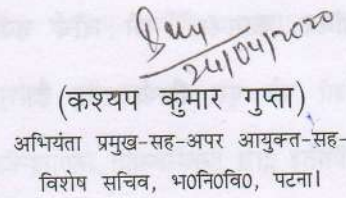 24/04/2020
(कश्यप कुमार गुप्ता)
अभियंता प्रमुख-सह-अपर आयुक्त-सह-
विशेष सचिव, भ०नि०वि०, पटना।